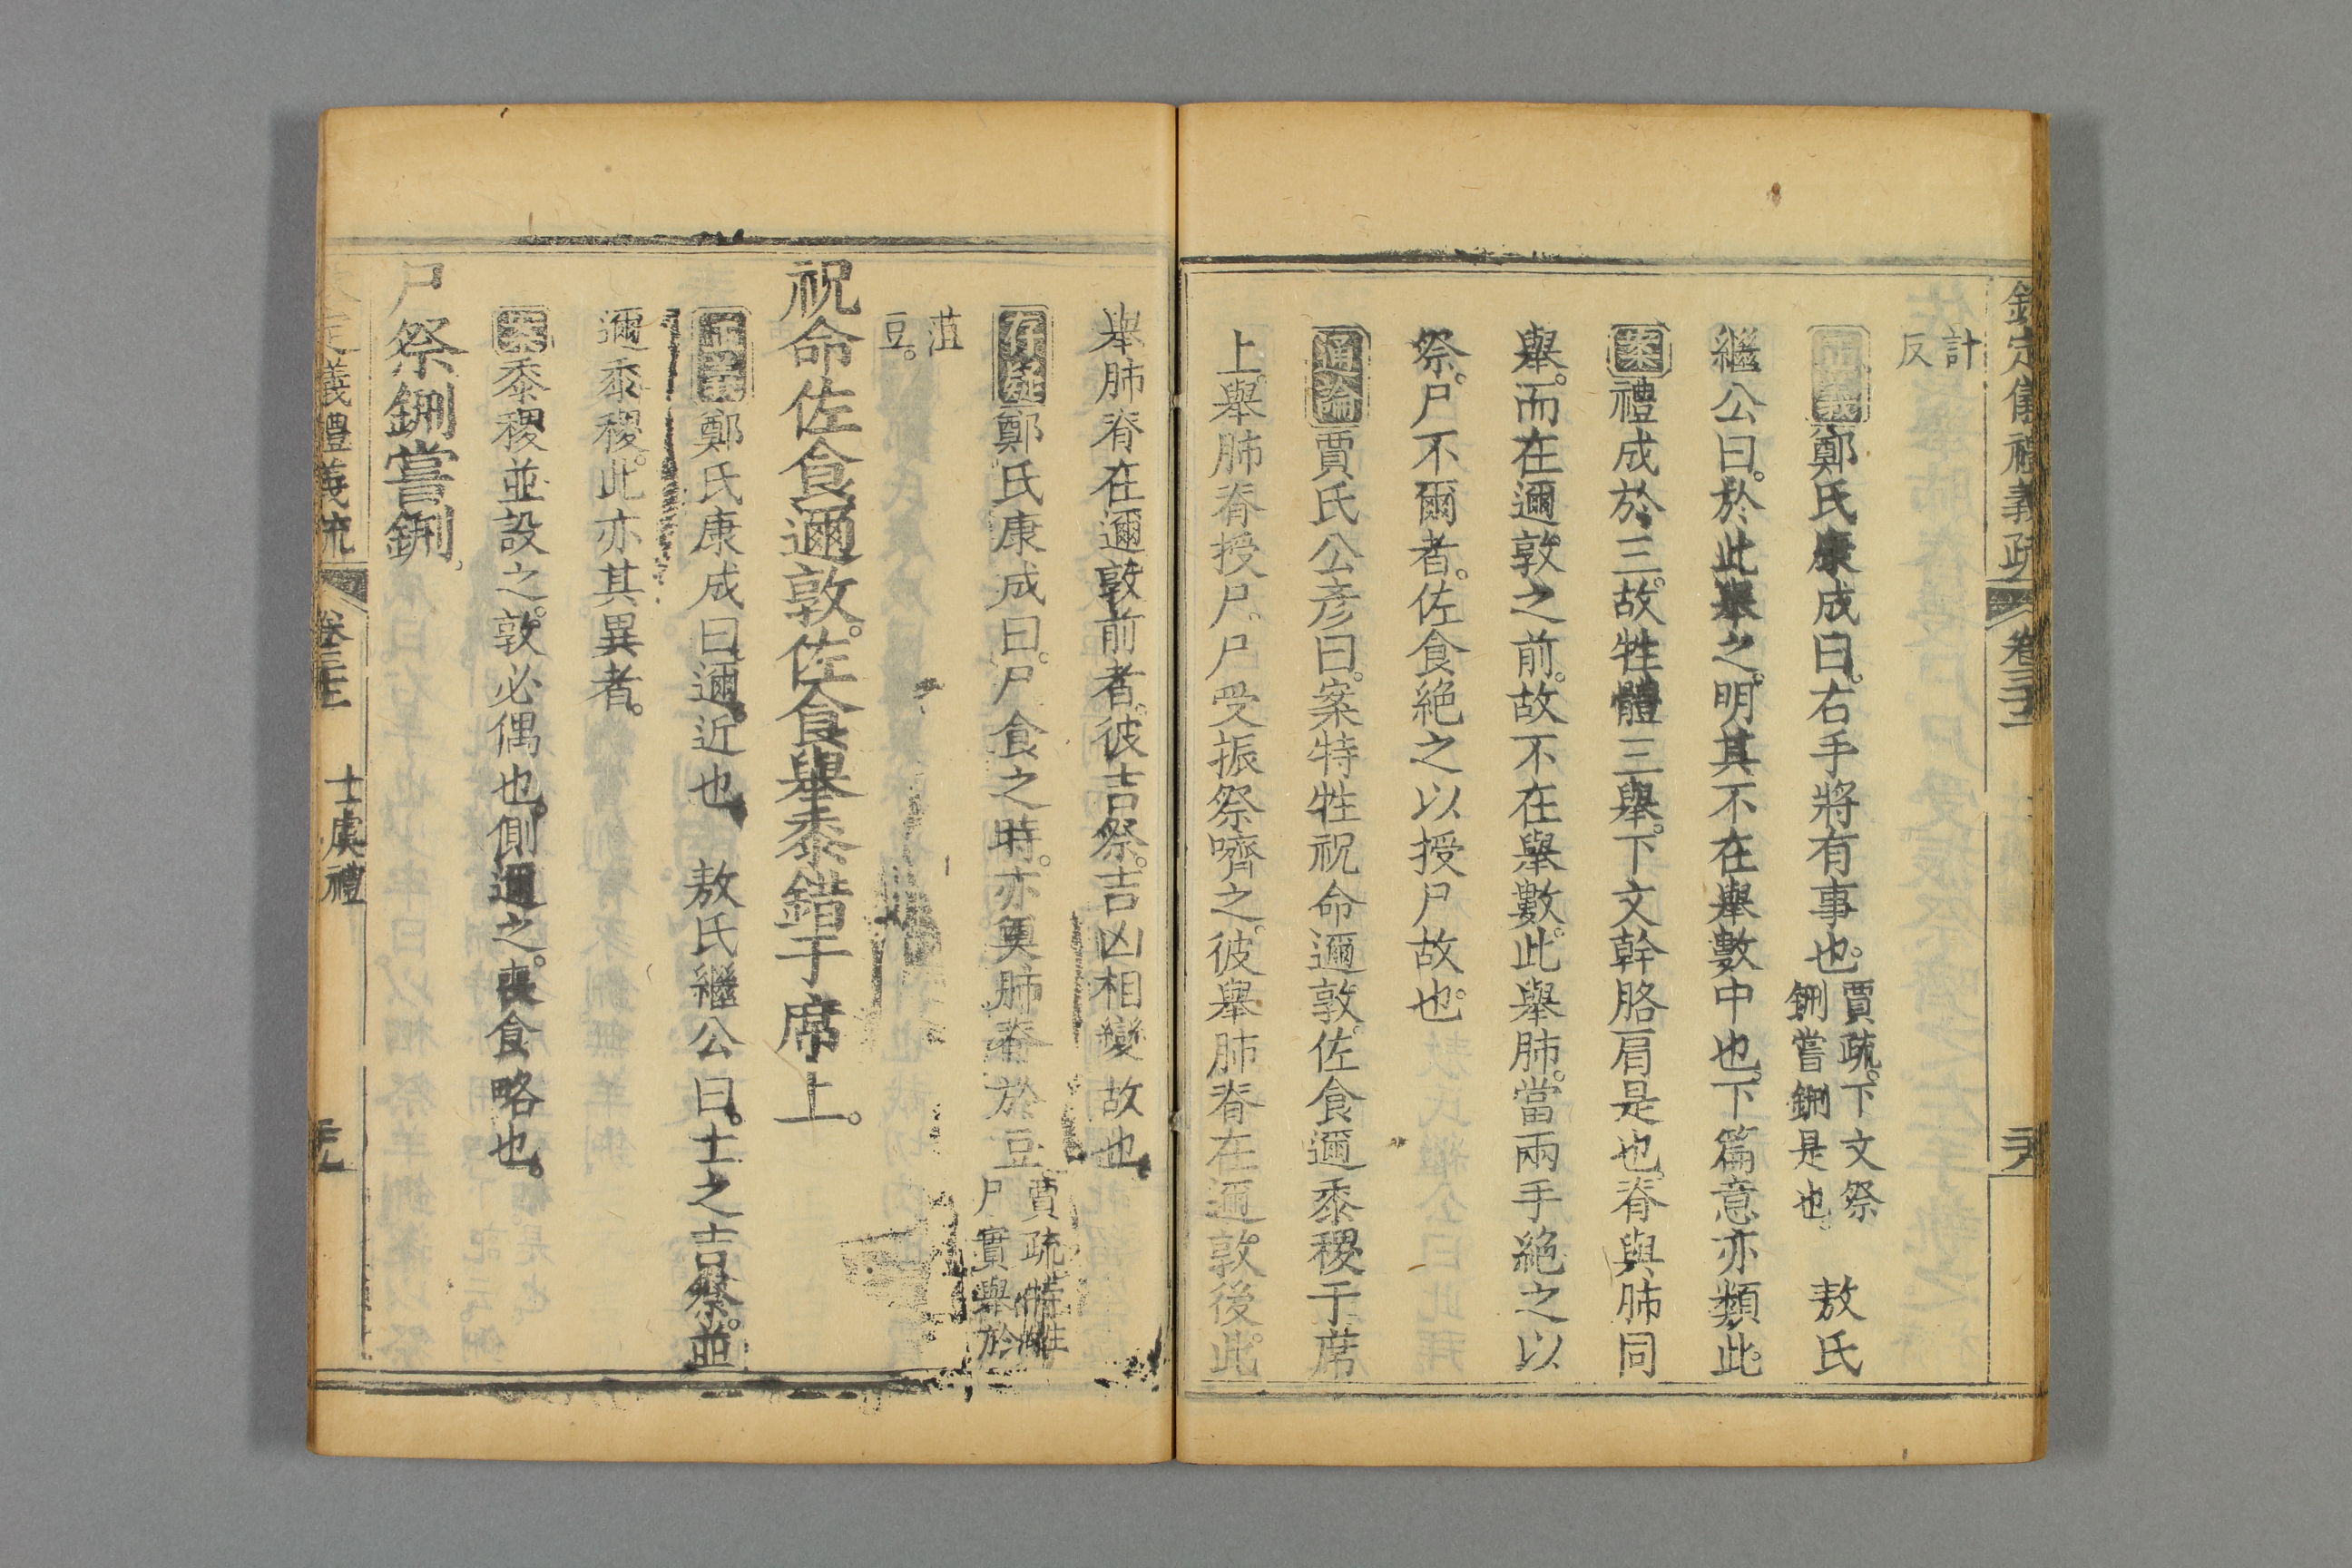 欽定儀禮義疏 卷三十三
計
反
正義鄭氏康成曰。右手將有事也。賈疏。下文祭
鉶嘗鉶是也。 敖氏
繼公曰。於此舉之。明其不在舉數中也。下篇意亦類此。
案禮成於三。故牲體三舉。下文幹胳肩是也。脊與肺同
舉。而在邇敦之前。故不在舉數。此舉肺。當兩手絶之以
祭。尸不爾者。佐食絶之以授尸故也。
通論賈氏公彥曰。案特牲祝命邇敦。佐食邇黍稷于席
上。舉肺脊授尸。尸受振祭嚌之。彼舉肺脊在邇敦後。此
舉肺脊在邇敦前者。彼吉祭。吉凶相變故也。
存疑鄭氏康成曰。尸食之時。亦奠肺脊於豆。賈疏。特牲
尸實舉於
菹
豆。
祝命佐食邇敦。佐食舉黍錯于席上。
正義鄭氏康成曰。邇。近也。 敖氏繼公曰。士之吉祭。並
邇黍稷。此亦其異者。
案黍稷並設之。敦必偶也。側邇之。喪食略也。
尸祭鉶嘗鉶。
欽定儀禮義疏 卷三十三 士虞禮